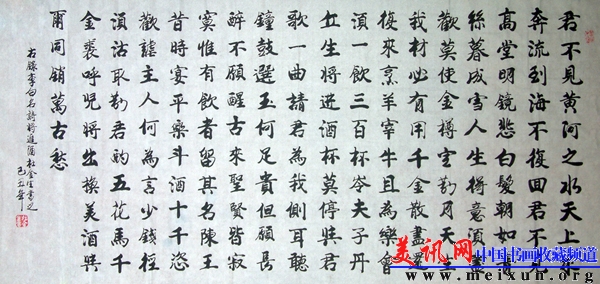 君不見黄河之水天上來
奔流到海不復回君不見
高堂明鏡悲白髮朝如青
絲暮成雪人生得意須盡
歡莫使金樽空對月天生
我材必有用千金散盡還
復來烹羊宰牛且為樂會
須一飲三百杯岑夫子丹
丘生將進酒杯莫停與君
歌一曲請君為我側耳聽
鐘鼓饌玉何足貴但願長
醉不願醒古來聖賢皆寂
寞惟有飲者留其名陳王
昔時宴平樂斗酒十千恣
歡謔主人何為言少錢徑
須沽取對君酌五花馬千
金裘呼兒將出換美酒與
爾同銷萬古愁
右錄李白名詩將進酒
美讯网 中国书画收藏频道
www.meixun.org